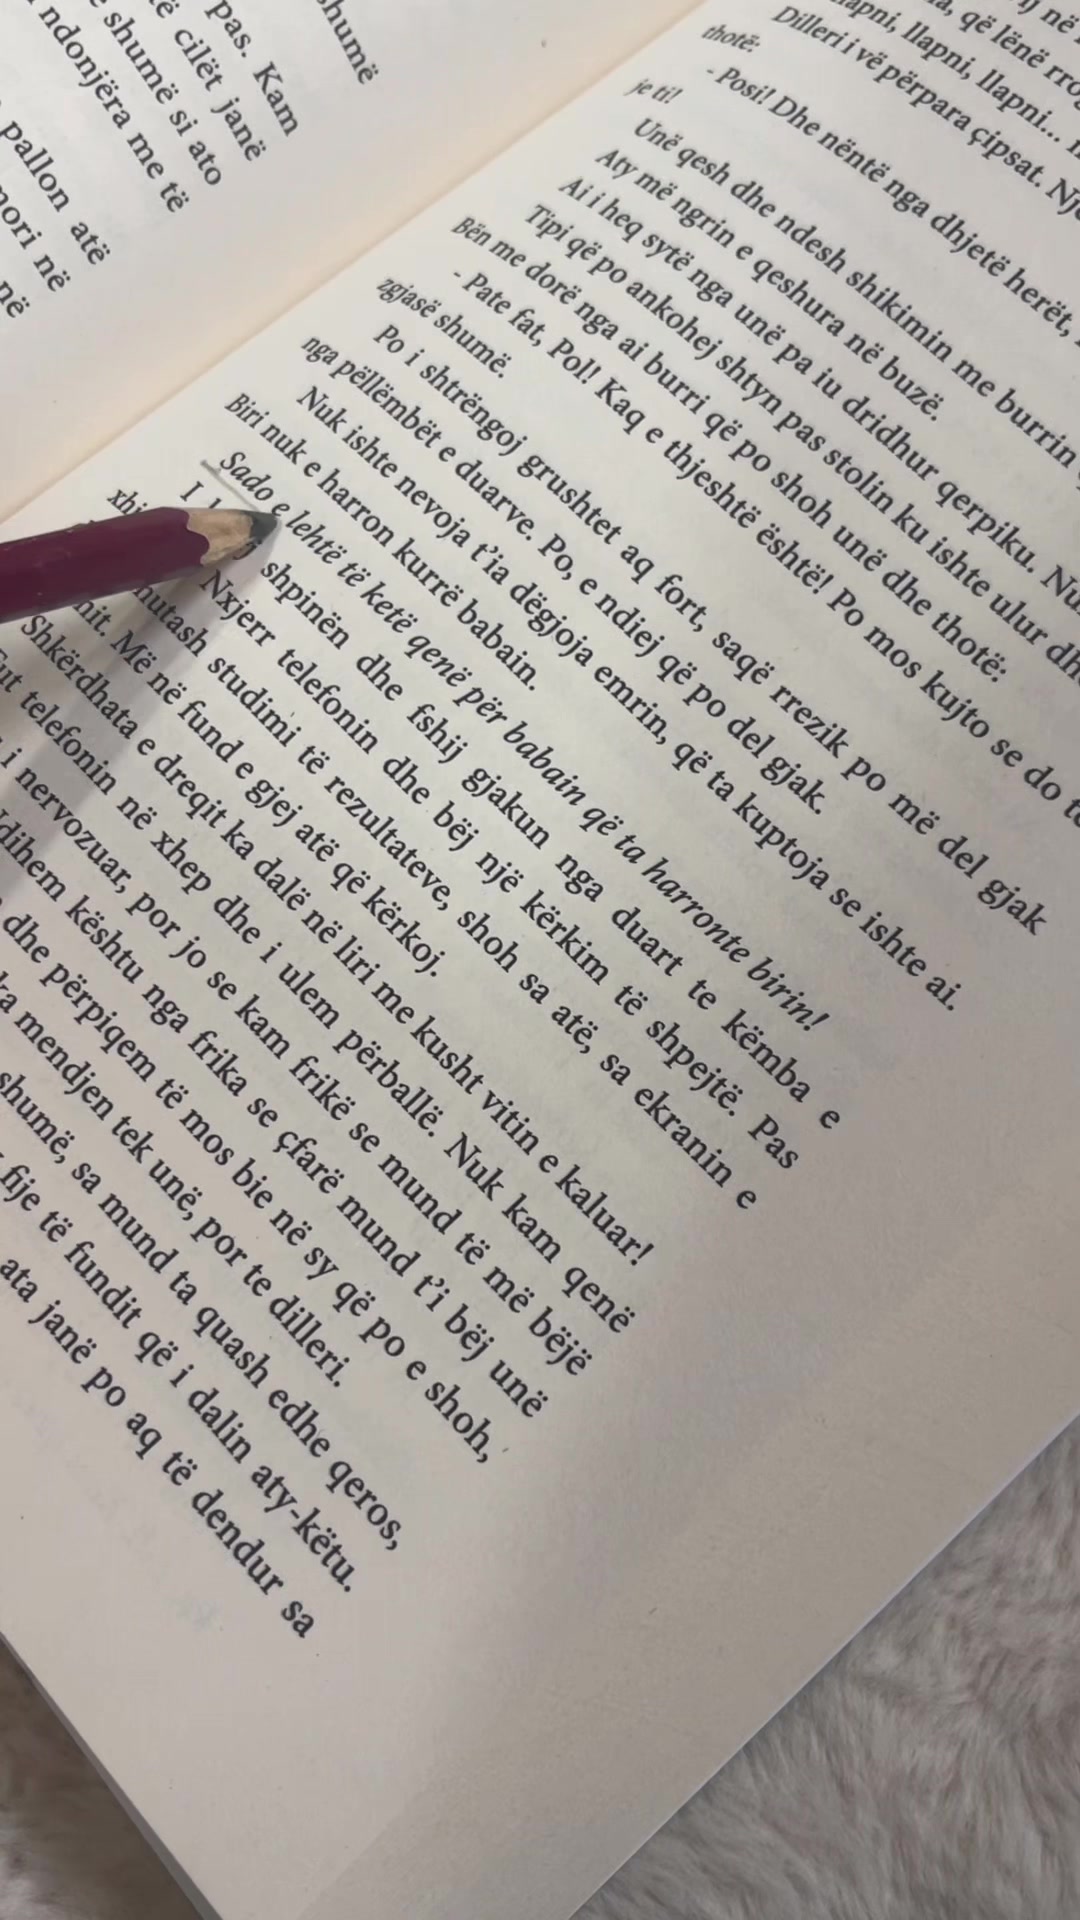 shumë
pas. Kam
të cilët janë
shumë si ato
ndonjëra me të
pallon atë
mori në
në
që lënë rrog
llapni, llapni...
Dilleri i vë përpara çipsat. Një
thotë:
- Posi! Dhe nëntë nga dhjetë herët,
je ti!
Unë qesh dhe ndesh shikimin me burrin
Aty më ngrin e qeshura në buzë.
Ai i heq sytë nga unë pa iu dridhur qerpiku.
Tipi që po ankohej shtyn pas stolin ku ishte ulur dhe
Bën me dorë nga ai burri që po shoh unë dhe thotë:
- Pate fat, Pol! Kaq e thjeshtë është! Po mos kujto se do të
zgjasë shumë.
Po i shtrëngoj grushtet aq fort, saqë rrezik po më del gjak
nga pëllëmbët e duarve. Po, e ndiej që po del gjak.
Nuk ishte nevoja t'ia dëgjoja emrin, që ta kuptoja se ishte ai.
Biri nuk e harron kurrë babain.
Sado e lehtë të ketë qenë për babain që ta harronte birin!
I shpinën dhe fshij gjakun nga duart te këmba e
Nxjerr telefonin dhe bëj një kërkim të shpejtë. Pas
minutash studimi të rezultateve, shoh sa atë, sa ekranin e
Më në fund e gjej atë që kërkoj.
Shkërdhata e dreqit ka dalë në liri me kusht vitin e kaluar!
Fut telefonin në xhep dhe i ulem përballë. Nuk kam qenë
i nervozuar, por jo se kam frikë se mund të më bëjë
Ndihem kështu nga frika se çfarë mund t'i bëj unë
dhe përpiqem të mos bie në sy që po e shoh,
mendjen tek unë, por te dilleri.
shumë, sa mund ta quash edhe qeros,
fije të fundit që i dalin aty-këtu.
ata janë po aq të dendur sa